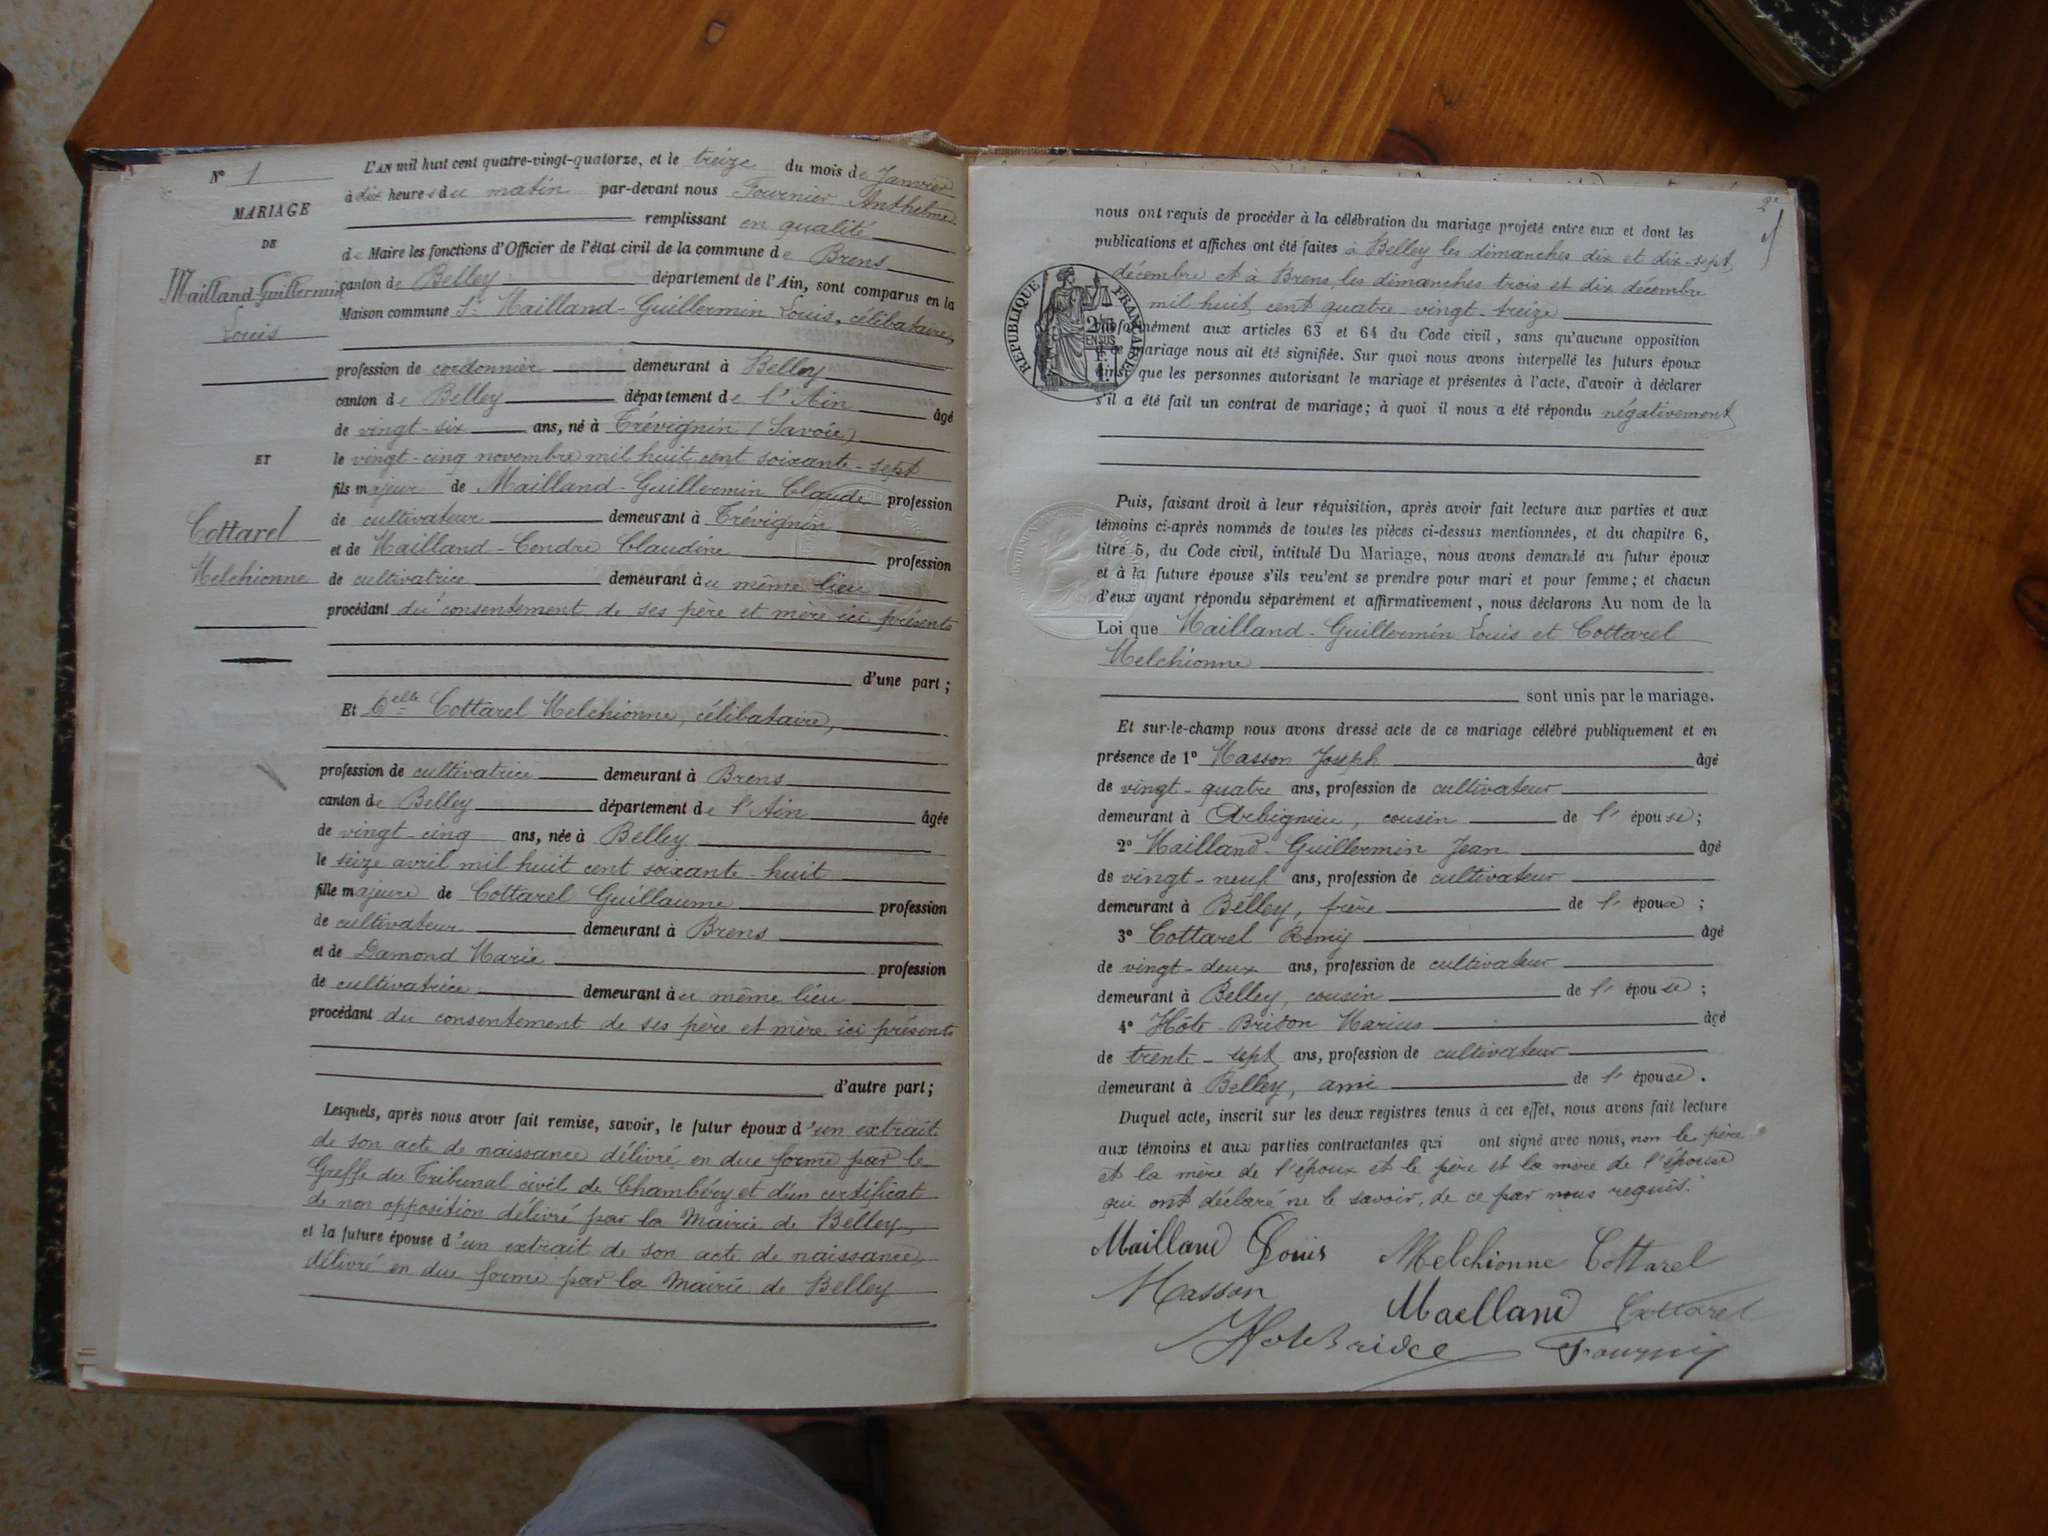 N° 1
MARIAGE
DE
Mailland-Guillermin
Louis
ET
Cottarel
Melchionne
L'AN mil huit cent quatre-vingt-quatorze, et le treize du mois de Janvier
à dix heures du matin par-devant nous Fournier Anthelme
remplissant en qualité
de Maire les fonctions d'Officier de l'état civil de la commune de Brens
canton de Belley département de l'Ain, sont comparus en la
Maison commune Sr Mailland-Guillermin Louis, célibataire,
profession de cordonnier demeurant à Belley
canton de Belley département de l'Ain âgé
de vingt-six ans, né à Trévignin (Savoie)
le vingt-cinq novembre mil huit cent soixante-sept
fils majeur de Mailland-Guillermin Claude profession
de cultivateur demeurant à Trévignin
et de Mailland-Cendre Claudine profession
de cultivatrice demeurant au même lieu
procédant du consentement de ses père et mère ici présents
d'une part ;
Et Delle Cottarel Melchionne, célibataire,
profession de cultivatrice demeurant à Brens
canton de Belley département de l'Ain âgée
de vingt-cinq ans, née à Belley
le seize avril mil huit cent soixante-huit
fille majeure de Cottarel Guillaume profession
de cultivateur demeurant à Brens
et de Damond Marie profession
de cultivatrice demeurant au même lieu
procédant du consentement de ses père et mère ici présents
d'autre part ;
Lesquels, après nous avoir fait remise, savoir, le futur époux d'un extrait
de son acte de naissance délivré en due forme par le
Greffe du Tribunal civil de Chambéry et d'un certificat
de non opposition délivré par la Mairie de Belley,
et la future épouse d'un extrait de son acte de naissance
délivré en due forme par la Mairie de Belley
2e
nous ont requis de procéder à la célébration du mariage projeté entre eux et dont les
publications et affiches ont été faites à Belley les dimanches dix et dix-sept
décembre et à Brens les dimanches trois et dix décembre
mil huit cent quatre-vingt-treize
RÉPUBLIQUE FRANÇAISE
conformément aux articles 63 et 64 du Code civil, sans qu'aucune opposition
à ce mariage nous ait été signifiée. Sur quoi nous avons interpellé les futurs époux
ainsi que les personnes autorisant le mariage et présentes à l'acte, d'avoir à déclarer
s'il a été fait un contrat de mariage ; à quoi il nous a été répondu négativement
Puis, faisant droit à leur réquisition, après avoir fait lecture aux parties et aux
témoins ci-après nommés de toutes les pièces ci-dessus mentionnées, et du chapitre 6,
titre 5, du Code civil, intitulé Du Mariage, nous avons demandé au futur époux
et à la future épouse s'ils veu'ent se prendre pour mari et pour femme ; et chacun
d'eux ayant répondu séparément et affirmativement, nous déclarons Au nom de la
Loi que Mailland-Guillermin Louis et Cottarel
Melchionne
sont unis par le mariage.
Et sur-le-champ nous avons dressé acte de ce mariage célébré publiquement et en
présence de 1° Masson Joseph âgé
de vingt-quatre ans, profession de cultivateur
demeurant à Arbignieu, cousin de l'épouse ;
2° Mailland-Guillermin Jean âgé
de vingt-neuf ans, profession de cultivateur
demeurant à Belley, frère de l'époux ;
3° Cottarel Rémy âgé
de vingt-deux ans, profession de cultivateur
demeurant à Belley, cousin de l'épouse ;
4° Hôte-Bridon Marius âgé
de trente-sept ans, profession de cultivateur
demeurant à Belley, ami de l'épouse.
Duquel acte, inscrit sur les deux registres tenus à cet effet, nous avons fait lecture
aux témoins et aux parties contractantes qui ont signé avec nous, non le père
et la mère de l'époux et le père et la mère de l'épouse
qui ont déclaré ne le savoir, de ce par nous requis.
Mailland Louis Melchionne Cottarel
Masson Mailland Cottarel